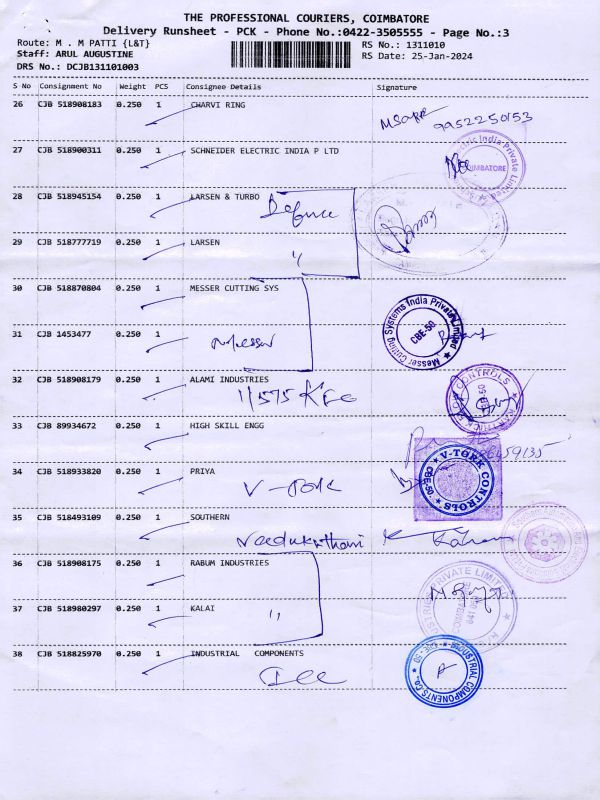 THE PROFESSIONAL COURIERS, COIMBATORE
Delivery Runsheet - PCK - Phone No.:0422-3505555 - Page No.:3
Route: M . M PATTI {L&T} RS No.: 1311010
Staff: ARUL AUGUSTINE RS Date: 25-Jan-2024
DRS No.: DCJB131101003
S No Consignment No Weight PCS Consignee Details Signature
26 CJB 518908183 0.250 1 CHARVI RING
9952250153
27 CJB 518900311 0.250 1 SCHNEIDER ELECTRIC INDIA P LTD
Electric India Private Limited
COIMBATORE
28 CJB 518945154 0.250 1 LARSEN & TURBO Defence
29 CJB 518777719 0.250 1 LARSEN "
30 CJB 518870804 0.250 1 MESSER CUTTING SYS
Messer Cutting Systems India Private Limited
CBE-50
31 CJB 1453477 0.250 1 Messer
32 CJB 518908179 0.250 1 ALAMI INDUSTRIES
CONTROLS
33 CJB 89934672 0.250 1 HIGH SKILL ENGG
34 CJB 518933820 0.250 1 PRIYA V-
V-TORK CONTROLS
CBE-050
35 CJB 518493109 0.250 1 SOUTHERN
36 CJB 518908175 0.250 1 RABUM INDUSTRIES
PRIVATE LIMITED
37 CJB 518980297 0.250 1 KALAI "
38 CJB 518825970 0.250 1 INDUSTRIAL COMPONENTS
INDUSTRIAL COMPONENTS CO.